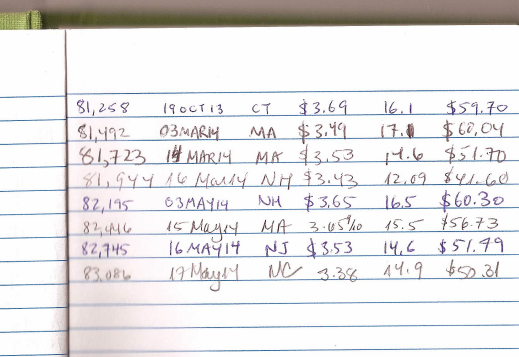 81,258 19OCT13 CT $3.69 16.1 $59.70
81,492 03MAR14 MA $3.49 $60,04
81,723 14 MAR14 MA $3.53 14.6 $51.70
81,944 16 Mar14 NH $3.43 12.09 $41.60
82,195 03MAY14 NH $3.65 16.5 $60.30
82,446 15 May14 MA 3.65 9/10 15.5 $56.73
82,745 16MAY14 NJ $3.53 14,6 $51.49
83,086 17May14 NC 3.38 14.9 $50.31